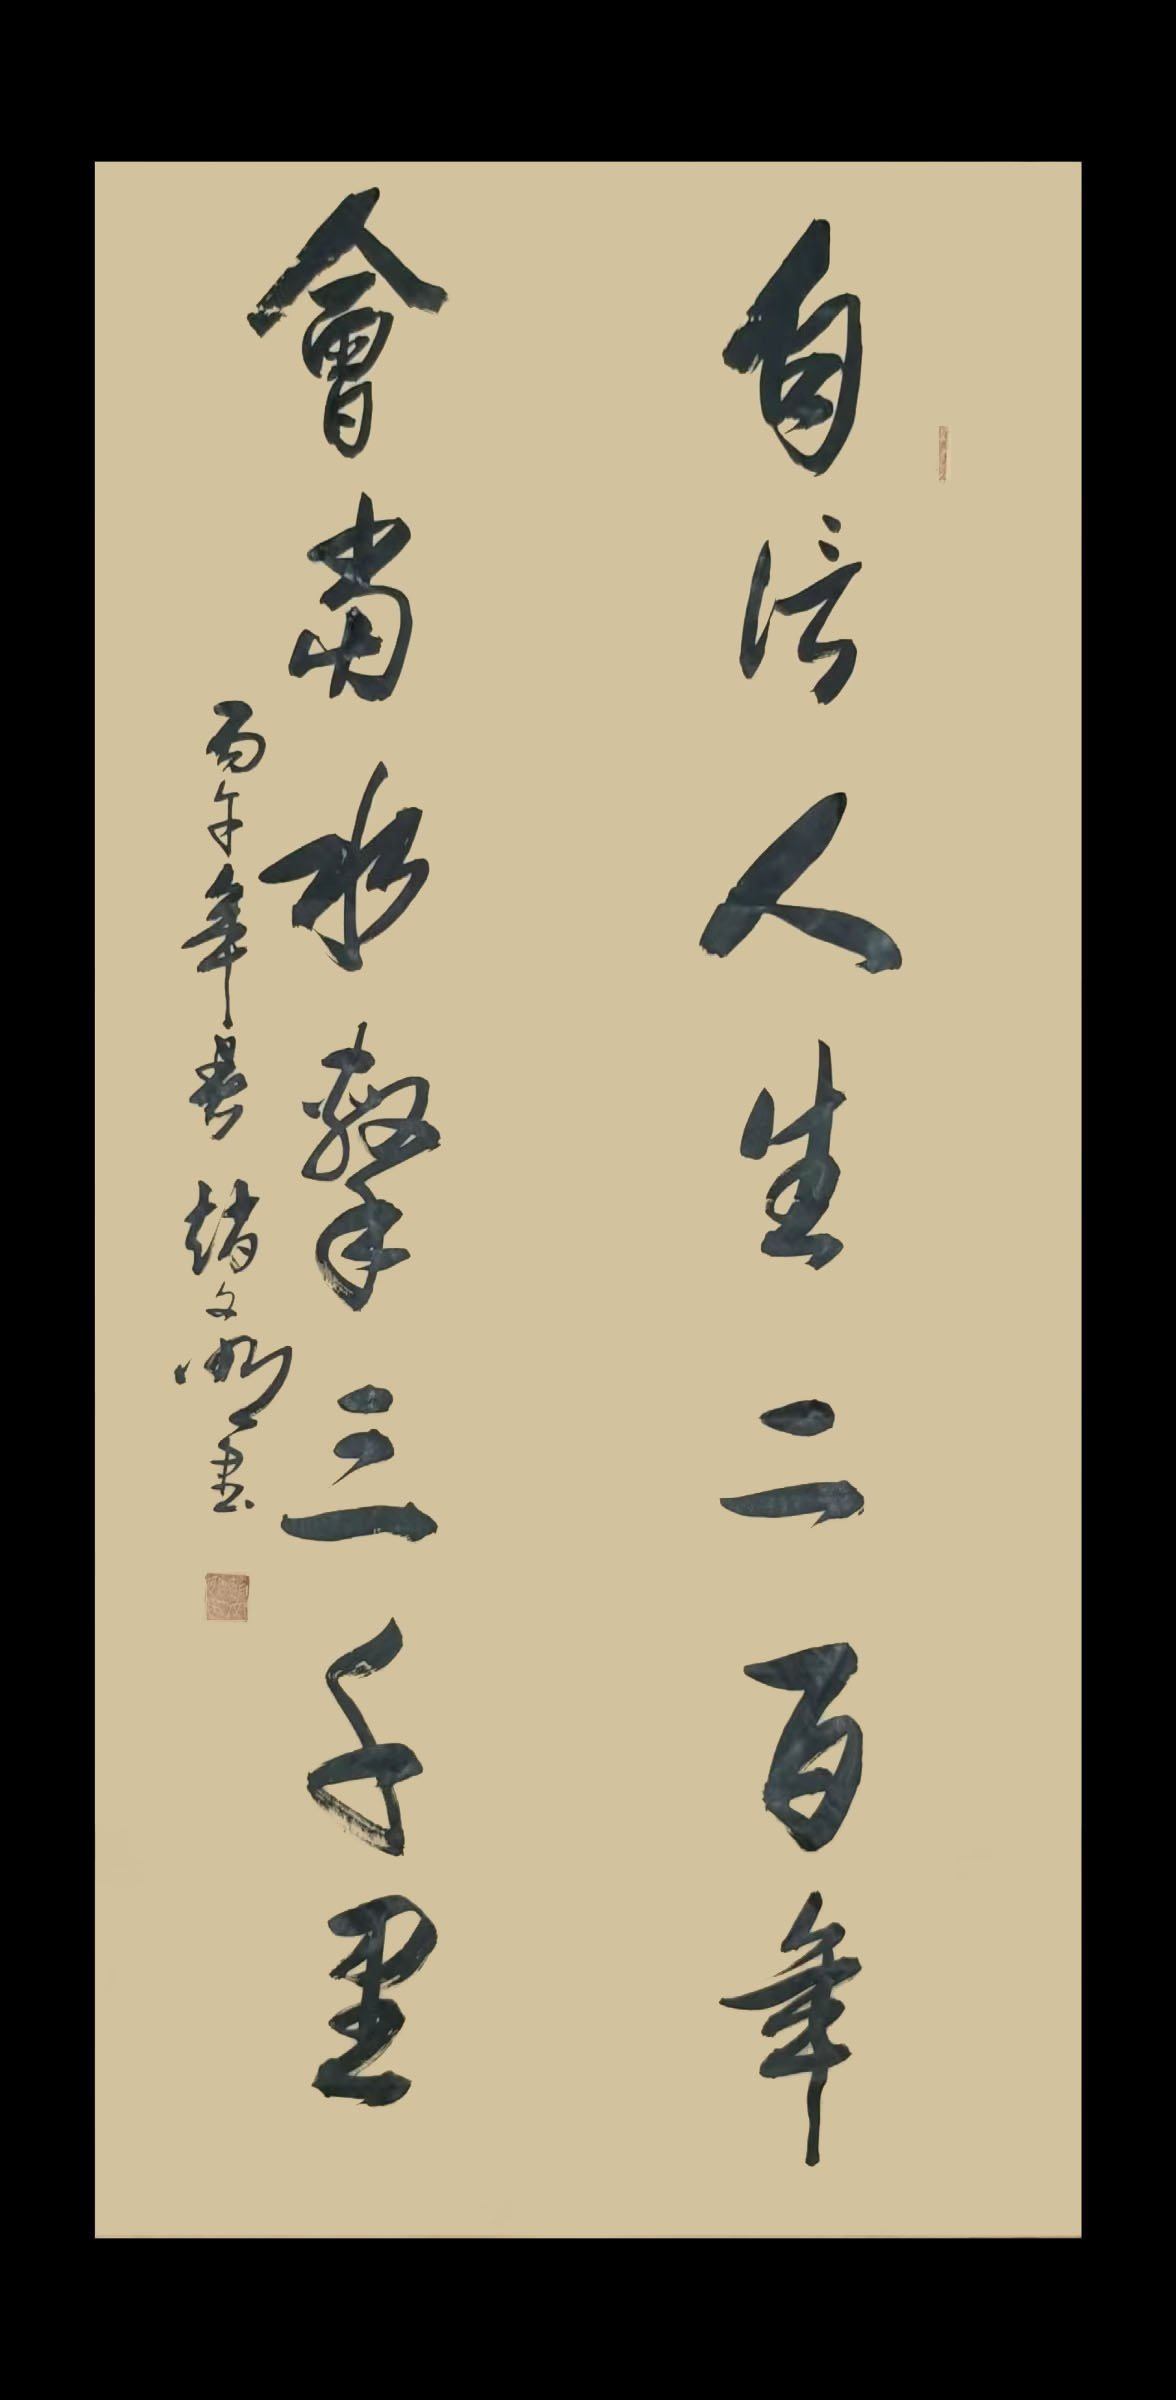 自信人生二百年
會當水擊三千里
丙午年春 趙文明書